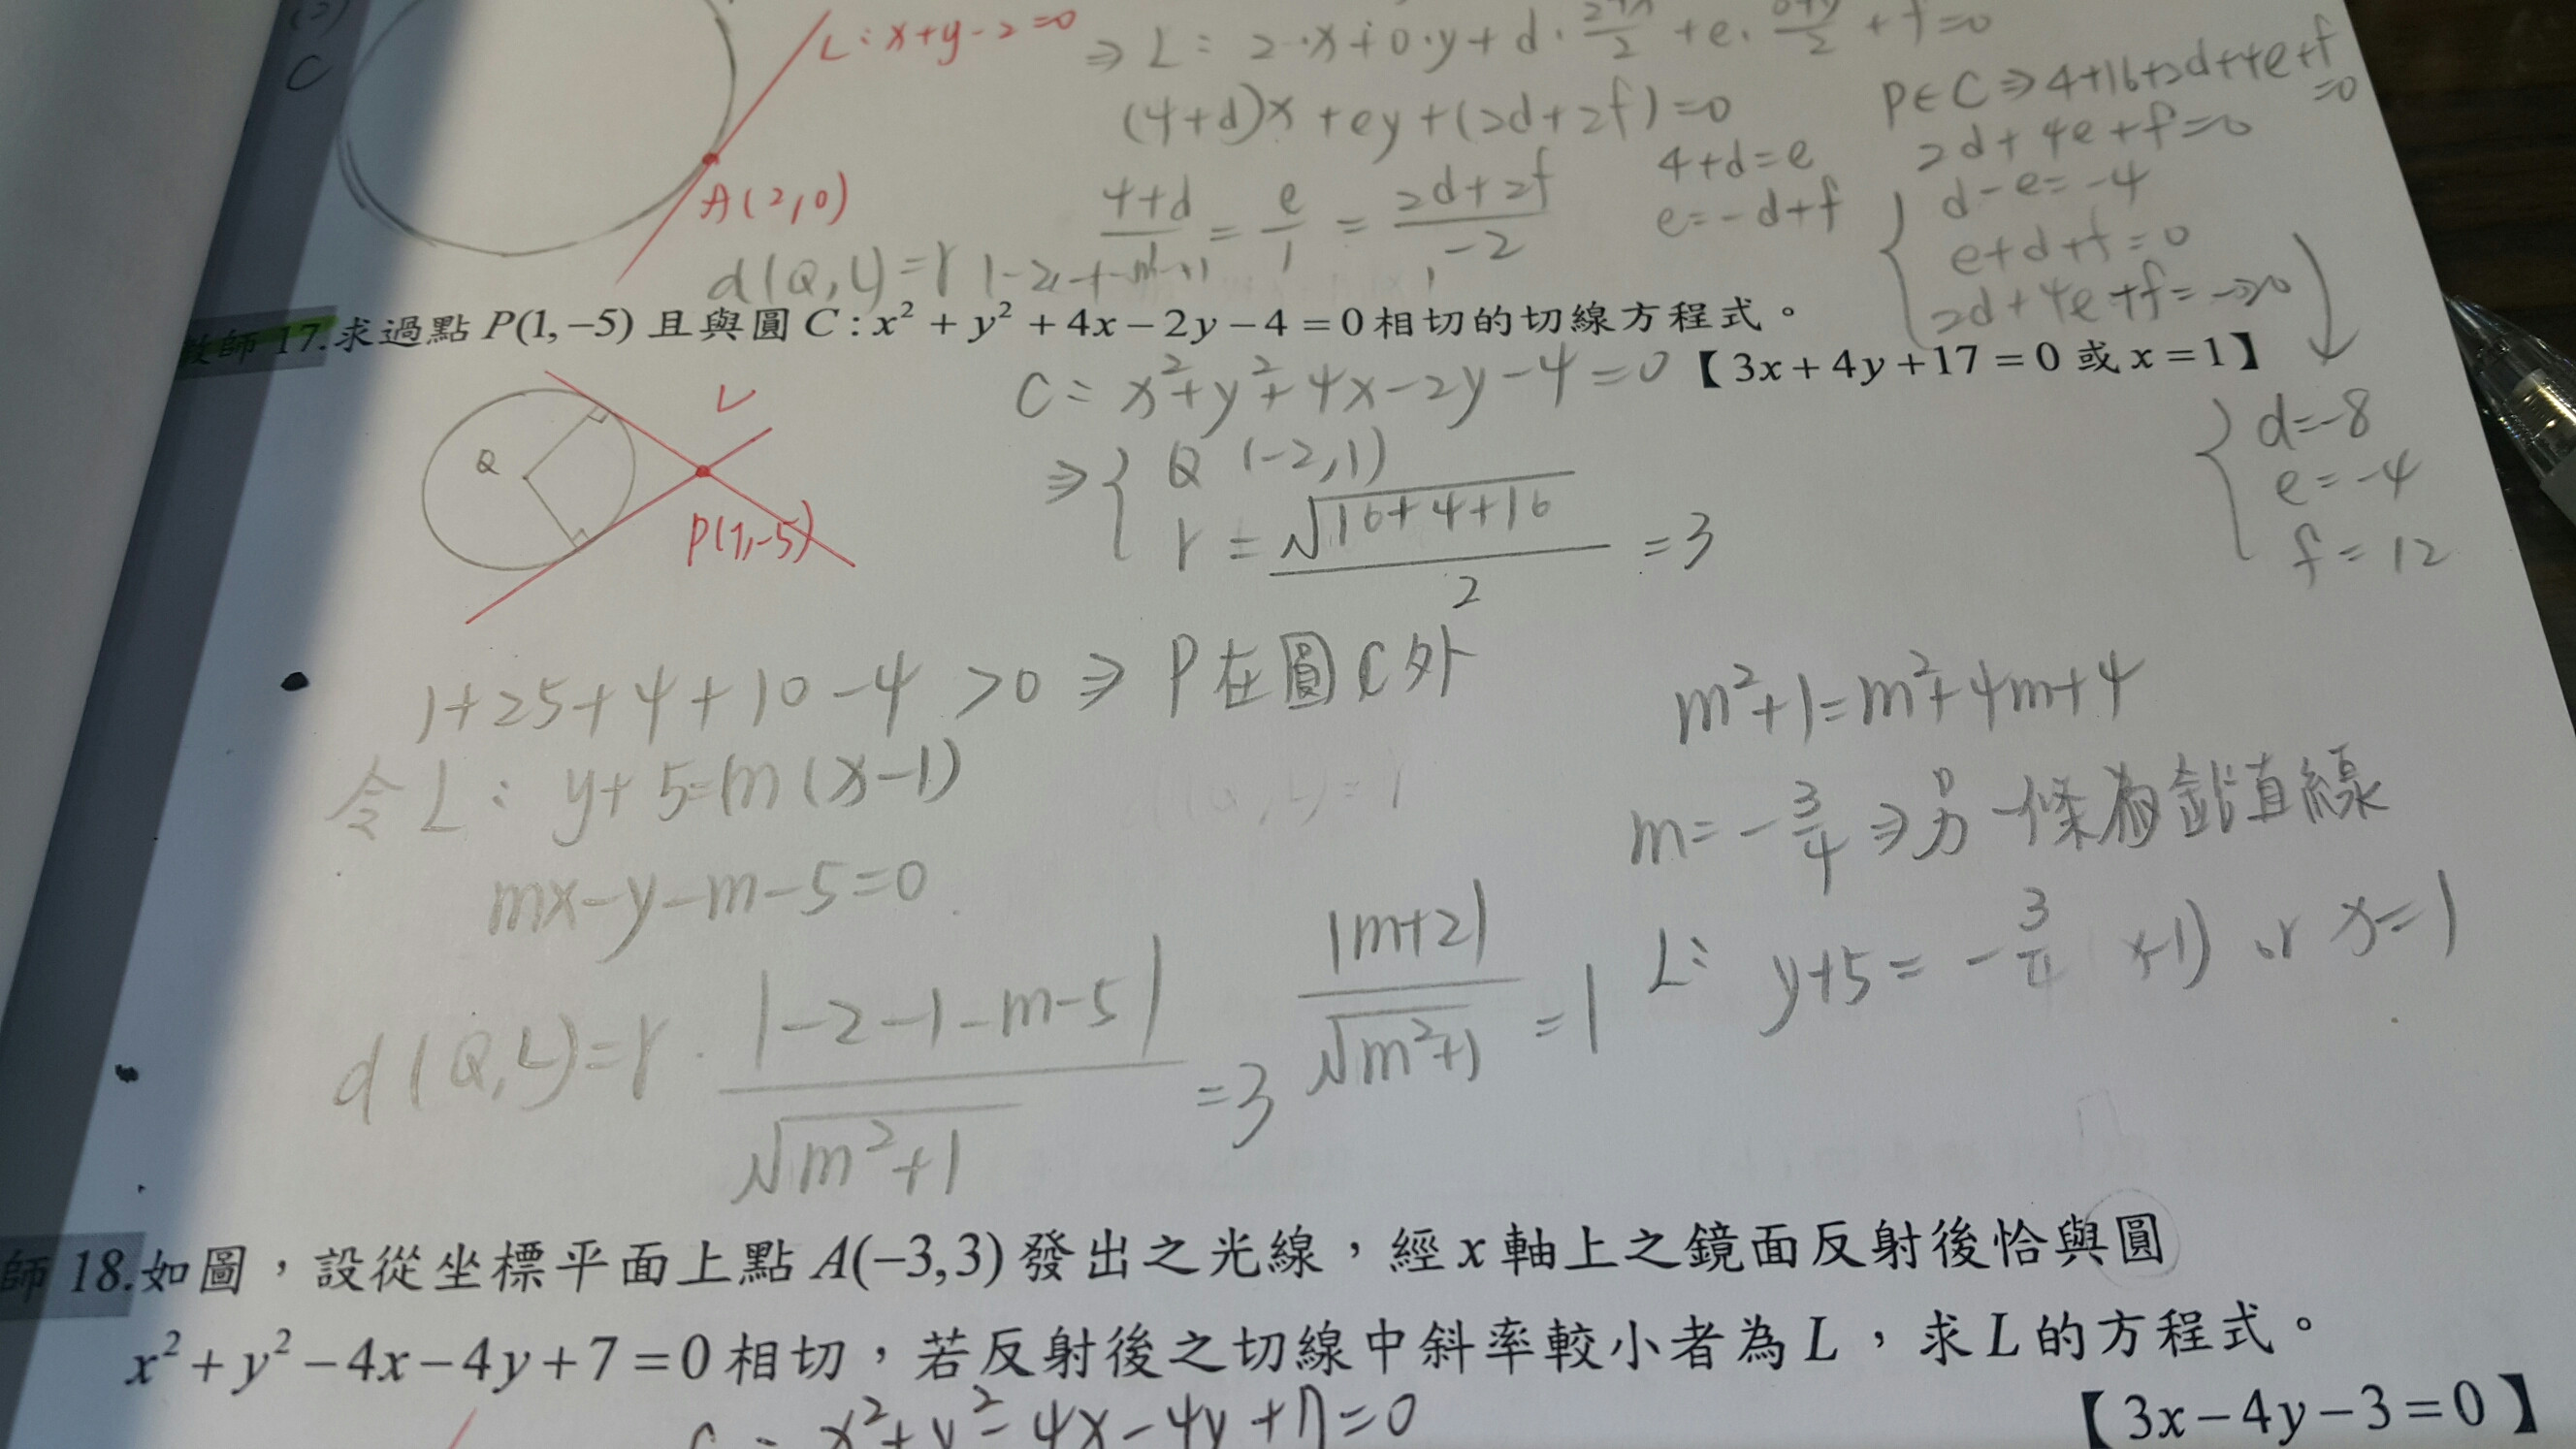 (2)
C
L: x+y-2=0
A(2,0)
⇒ L: 2·x+0·y+d·\frac{2+x}{2}+e·\frac{0+y}{2}+f=0
(4+d)x+ey+(2d+2f)=0
\frac{4+d}{1}=\frac{e}{1}=\frac{2d+2f}{-2}
4+d=e
e=-d+f
P∈C⇒4+16+2d+4e+f=0
2d+4e+f=0
d-e=-4
e+d+f=0
2d+4e+f=-20
d=-8
e=-4
f=12
d(Q,L)=r
教師 17.求過點 P(1,−5) 且與圓 C : x² + y² + 4x − 2y − 4 = 0 相切的切線方程式。
【3x + 4y + 17 = 0 或 x = 1】
Q
L
P(1,-5)
C: x²+y²+4x-2y-4=0
⇒ Q (-2,1)
r = \frac{√16+4+16}{2} =3
1+25+4+10-4 >0 ⇒ P在圓C外
令L: y+5=m(x-1)
mx-y-m-5=0
d(Q,L)=r \frac{|-2-1-m-5|}{√m²+1} =3
\frac{|m+2|}{√m²+1} =1
m²+1=m²+4m+4
m=-\frac{3}{4} ⇒另一條為鉛直線
L: y+5=-\frac{3}{4} x-1) or x=1
師 18.如圖，設從坐標平面上點 A(−3,3) 發出之光線，經 x 軸上之鏡面反射後恰與圓
x² + y² − 4x − 4y + 7 = 0 相切，若反射後之切線中斜率較小者為 L，求 L 的方程式。
【3x − 4y − 3 = 0】
C: x²+y²-4x-4y+7=0